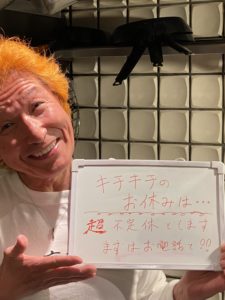 キテキテの
お休みは…
超不定休とします
まずはお電話で⁇